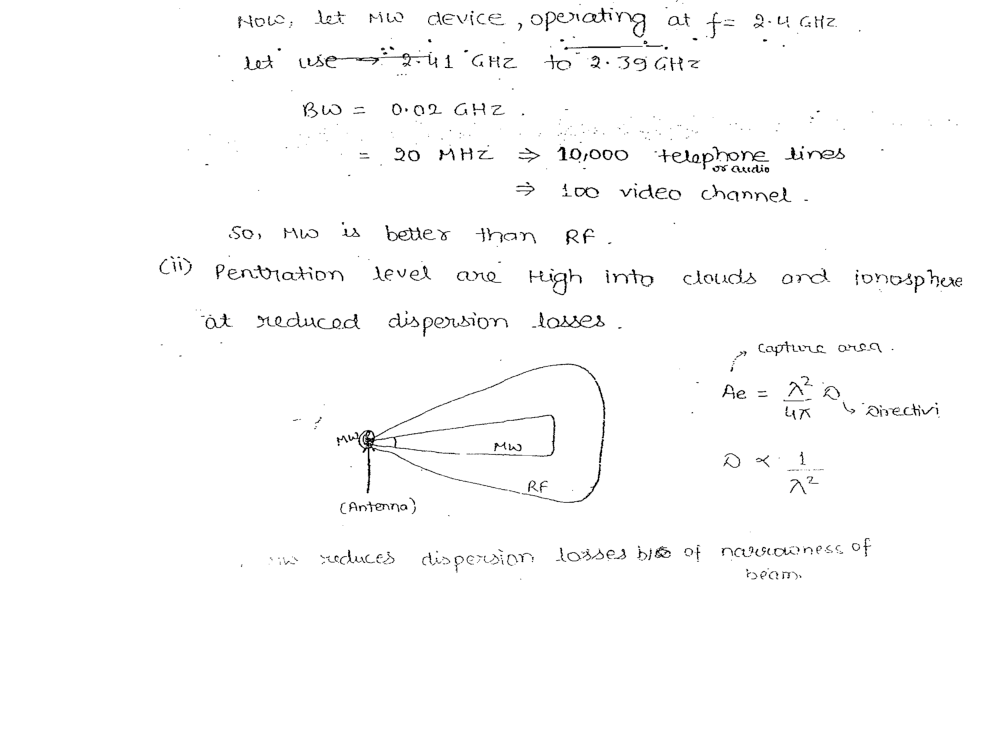 Now, let MW device, operating at f = 2.4 GHz
let use → 2.41 GHz to 2.39 GHz
BW = 0.02 GHz.
= 20 MHz ⇒ 10,000 telephone lines
or audio
⇒ 100 video channel.
So, MW is better than RF.
(ii) Pentration level are High into clouds and ionosphere
at reduced dispersion losses.
Capture area.
Ae = λ²/4π D
Directivi
MW
MW
D ∝ 1/λ²
RF
(Antenna)
reduces dispersion losses b/c of narrowness of
beam.